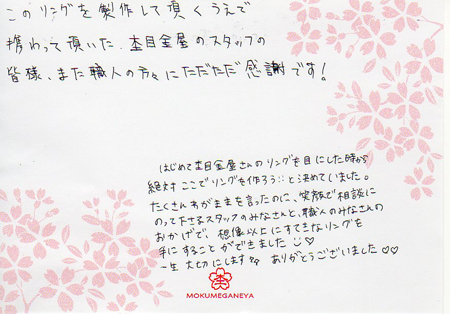 このリングを製作して頂くうえで
携わって頂いた、杢目金屋のスタッフの
皆様、また職人の方々にただただ感謝です!
はじめて杢目金屋さんのリングを目にした時から
絶対ここでリングを作ろう!!と決めていました。
たくさんわがままを言ったのに、笑顔で相談に
のって下さるスタッフのみなさんと、職人のみなさんの
おかげで、想像以上にすてきなリングを
手にすることができました♡
一生大切にします ありがとうございました♡♡
MOKUMEGANEYA